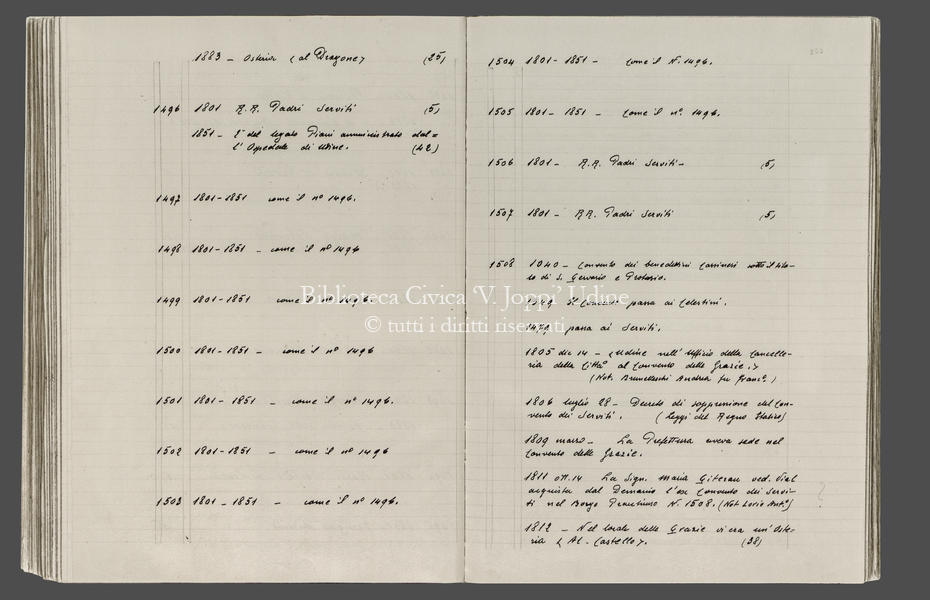 1883 - Osteria < al Dragone > (25)
1496 1801 R.R. Padri Serviti (5)
1851 - E' del legato Piani amministrato dal=
l'Ospedale di Udine. (42)
1497 1801-1851 come il nº 1496.
1498 1801-1851 - come il nº 1496
1499 1801-1851 come il nº 1496
1500 1801-1851 - come il nº 1496
1501 1801-1851 - come il nº 1496.
1502 1801-1851 - come il nº 1496
1503 1801-1851 - come il nº 1496.
1504 1801-1851 - come il N. 1496.
1505 1801-1851 - come il nº 1496.
1506 1801 - R.R. Padri Serviti - (5)
1507 1801 - R.R. Padri Serviti (5)
1508 - Convento dei benedettini Cassinesi sotto il tito-
lo di S. Gervasio e Protasio.
Il Convento passa ai Celestini.
1479 - passa ai Serviti.
1805 dic 14 - < Udine nell'Uffizio della Cancelle-
ria della Città al Convento delle Grazie. >
(Not. Brunelleschi Andrea fu Francº.)
1806 luglio 28 - Decreto di soppressione del Con-
vento dei Serviti. (Leggi del Regno Italico)
1809 marzo - La Prefettura aveva sede nel
Convento delle Grazie.
1811 ott. 14 La Sign. Maria ved. Vial
acquista dal Demanio l'ex Convento dei Servi-
ti nel Borgo Pracchiuso N. 1508. (Not Lorio Antº)
?
1812 - Nel locale delle Grazie vi era un'Oste-
ria < Al - Castello >. (38)
Biblioteca Civica 'V. Joppi' Udine
© tutti i diritti riservati